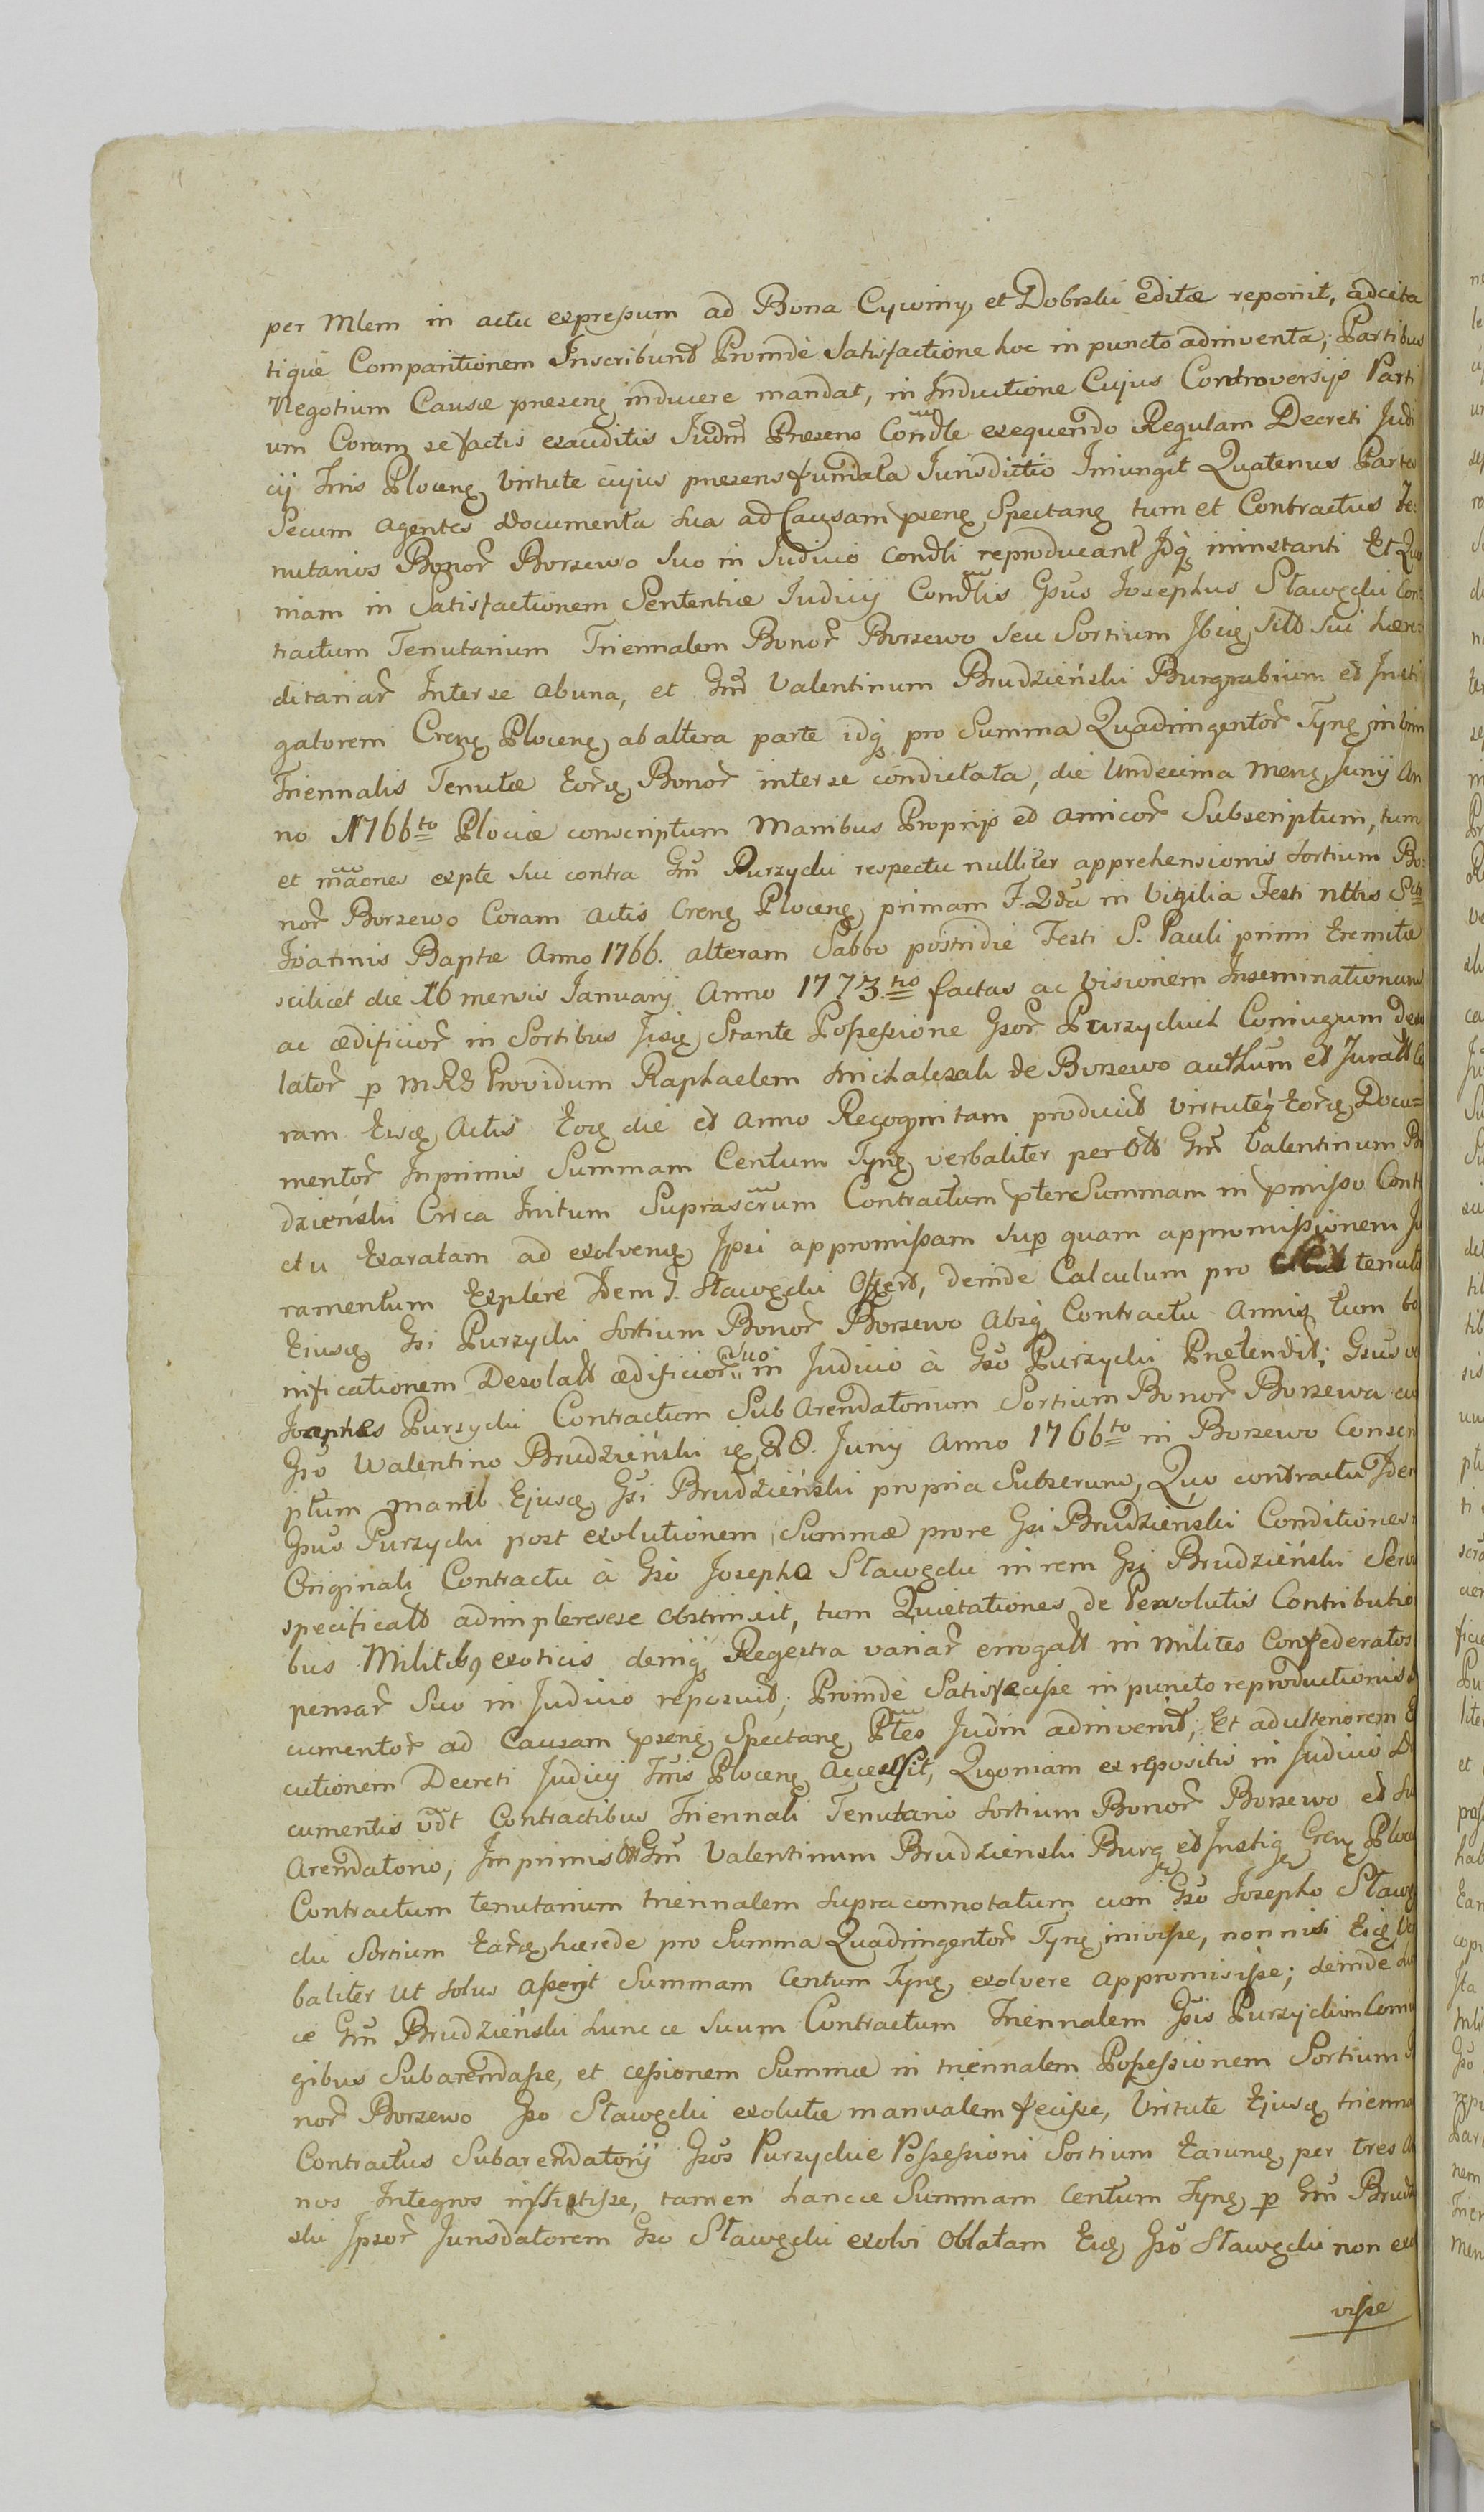 per Mlem in actu expressum ad Bona Cywiny et Dobrski editæ reponit, adcita
tiqué Comparitionem Inscribunt Proinde Satisfactione hoc in puncto adinventa; Partibus
Negotium Causæ præseng inducere mandat, in Inductione Cujus Controversijs Parti
um Coram se factis exauditis Judm Præsens Condle exequendo Regulam Decreti Judi
cij Tris Ploceng Virtute cujus præsens fundata Jurisdictio Iniungit Quatenus Partes
Secum agentes Documenta sua ad Causam pseng Spectang tum et Contractus te:
nutarios Bonor Borzewo suo in Judicio condli reproducant Jdq ininstanti Et Quo
niam in Satisfactionem Sententiæ Judicij Condlis Gsus Josephus Sławęcki Con:
tractum Tenutarium Triennalem Bonor Borzewo seu Sortium Ibię sitt sui hære:
ditariar Inter se ab una, et Gm Valentinum Brudzieński Burgrabium et Insti
gatorem Creng Ploceng ab altera parte idq pro Summa Quadringentor Tyng in vim
Triennalis Tenutæ Eorę Bonor inter se condictata, die Undecima Meng Junij An
no 1766to Plociæ conscriptum Manibus Proprijs et amicor Subscriptum, tum
et mãones expte sui contra Gm Purzycki respectu nulliter apprehensionis sortium Bo:
nor Borzewo Coram actis Creng Ploceng primam F. 2da in Vigilia Festi nttis Sti
Joannis Baptæ Anno 1766. alteram Sabbo postridie Festi S. Pauli primi Eremitæ
scilicet die 16 mensis Januarij Anno 1773.tio factas ac Visionem Inseminationum
ac ædificior in Sortibus Iisę Stante Possessione Gsor Purzyckich Coniugum deso
lator p MRG Providum Raphaelem Michalczak de Borzewo authum et Juratt Co
ram Eisę Actis Eoę die et Anno Recognitam producit Virtuteq Eorę Docu=
mentor Inprimis Summam Centum Tyng verbaliter per Gm Valentinum Bru
dzieński Circa Initum Suprascrum Contractum pter Summam in pmisso Contra
ctu Exaratam ad exolveng Ipsi appromissam sup quam appromissionem Ju
ramentum Explere Idem G. Sławęcki Offert, deinde Calculum pro tenuta
Ejusę Gsi Purzycki Sortium Bonor Borzewo Absq Contractu Annis tum bo
nificationem Desolatt ædificior suo in Judicio à Gso Purzycki Prætendit; Gsus vo
Josephus Purzycki Contractum Sub Arendatorium Sortium Bonor Borzewa cum
Gso Walentino Brudzieński ię 28. Junij Anno 1766to in Borzewo Conscri
ptum manu Ejusę Gsi Brudzieński propria Subscrum, Quo contractu Idem
Gsus Purzycki post exolutionem Summæ prore Gsi Brudzieński Conditiones
Originali Contractu à Gso Josepho Sławęcki in rem Gsi Brudzieński Servi
specificatt adimplere sese obstrinxit, tum Quietationes de Persolutis Contributio
bus Militibg exoticis deniq Regestra variar erogatt in Milites Confederatos
pensar Suo in Judicio reposuit; Proindè Satisfecisse in puncto reproductionis
cumentor ad Causam pseng Spectang Ptes Judm adinvenit; Et ad ulteriorem
cutionem Decreti Judicij Tris Ploceng Accessit, Quoniam ex repositis in Judicio Do
cumentis vdt Contractibus Triennali Tenutario sortium Bonor Borzewo et Sub
Arendatorio, Imprimis Gm Valentinum Brudzienski Burg et Instig Creng Ploc
Contractum tenutarium triennalem supra connotatum cum Gso Josepho Sławę
cki Sortium Earę hærede pro Summa Quadringentor Tyng inivisse, non nisi Eię Ver
baliter ut solus asserit Summam Centum Tyng exolvere appromisisse; deinde
ce Gm Brudzieński hunc ce suum Contractum Triennalem Gsis Purzyckim Coniu
gibus Subarendasse, et cessionem Summæ in triennalem Possessionem Sortium
nor Borzewo Gso Sławęcki exolutæ manualem fecisse, Virtute Ejusę trienna
Contractus Subarendatorij Gsos Purzyckie Possessioni Sortium Earumę per tres An
nos Integros institisse, tamen hancce Summam Centum Tyng p Gm Brudz
ski Ipsor Jurisdatorem Gso Sławęcki exolvi Oblatam Eię Gso Sławęcki non exol
visse